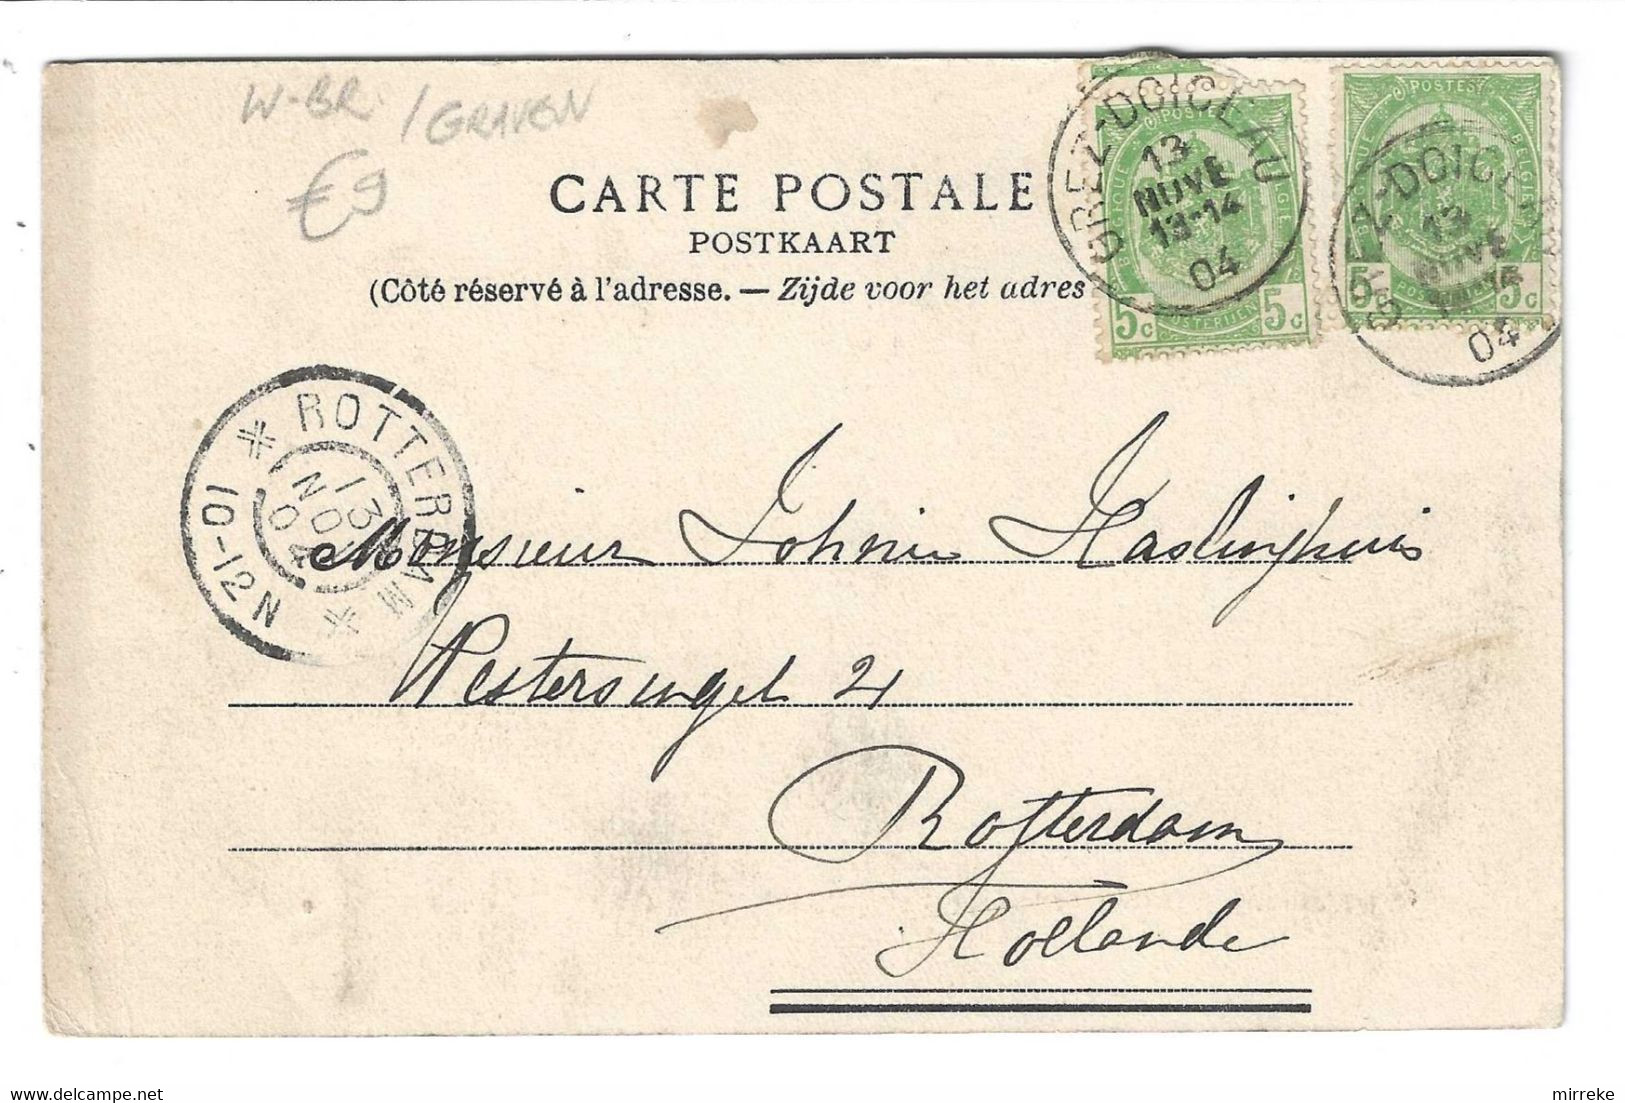 W-BR / GRAVEN
€9
CARTE POSTALE
POSTKAART
(Côté réservé à l'adresse. — Zijde voor het adres
GREZ-DOICEAU
13
NOVE
13-14
04
POSTES
BELGIQUE
POSTERIJEN
5c 5c
GREZ-DOICEAU
13
NOVE
04
POSTES
BELGIQUE
5c 5c
ROTTERDAM
13
NOV
04
10-12N
Monsieur Johnie Haslinghuis
Westersingel 21
Rotterdam
Hollande
delcampe.net
mirreke